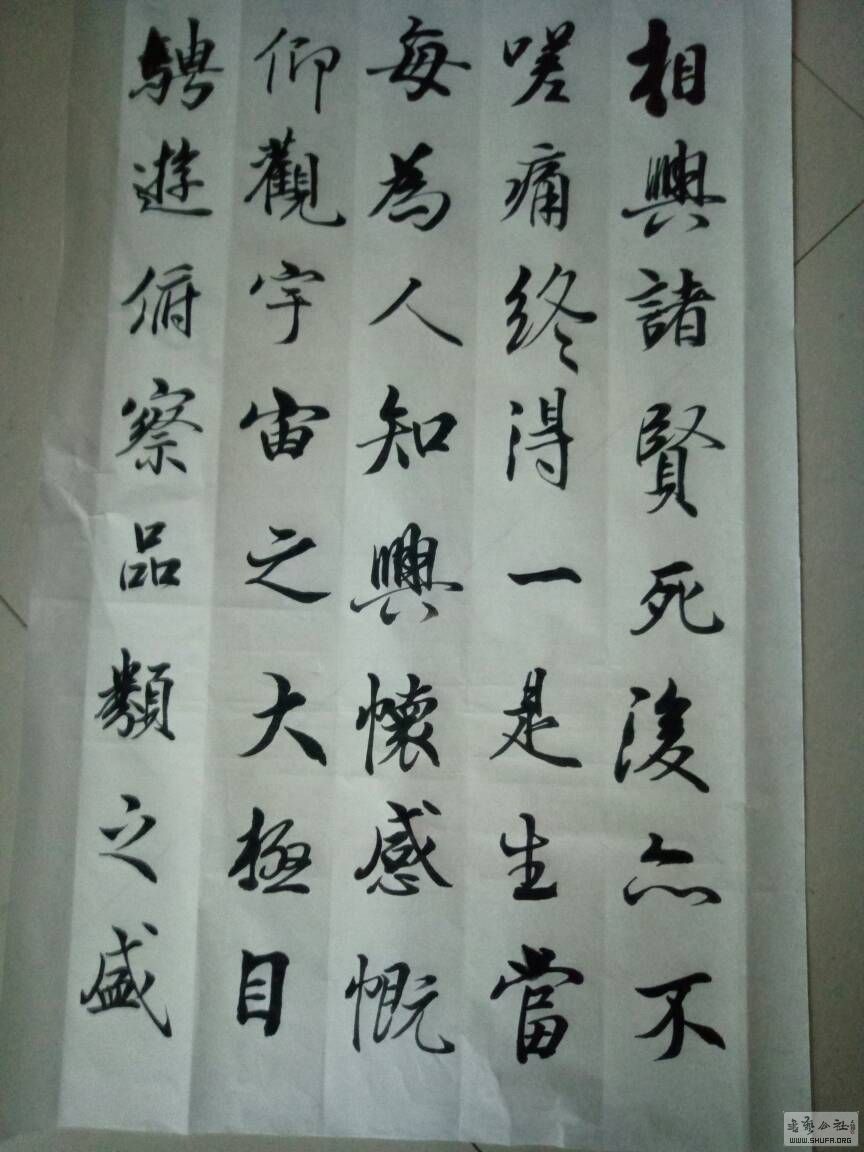 相興諸賢死後亦不
嗟痛終得一是生當
每為人知興懷感慨
仰觀宇宙之大極目
騁遊俯察品類之盛
書藝公社
WWW.SHUFA.ORG